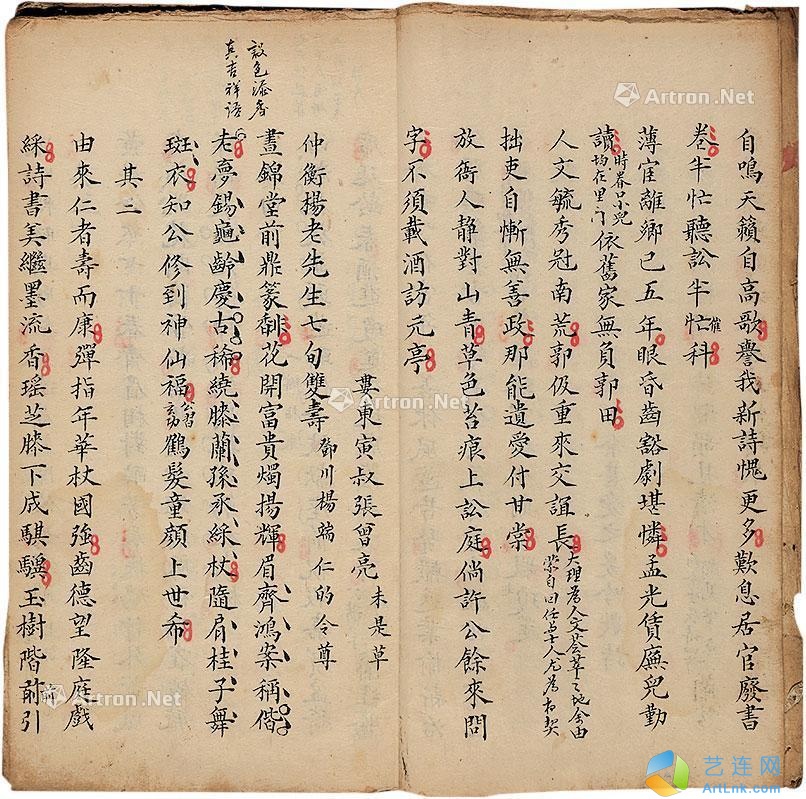 自鳴天籟自高歌譽我新詩愧更多歎息居官廢書
卷半忙聽訟半忙催科
薄宦離鄉已五年眼昏齒豁劇堪憐孟光賃廡兒勤
讀時眷小兒均在里门依舊家無負郭田
人文毓秀冠南荒郭伋重來交誼長大理為人文荟萃之地余由蒙自回任与士人尤為相契
拙吏自慚無善政那能遺愛付甘棠
放衙人靜對山青草色苔痕上訟庭倘許公餘來問
字不須載酒訪元亭
婁東寅叔張曾亮未是草
仲衡楊老先生七旬雙壽鄧川楊端仁的令尊
晝錦堂前鼎篆馡花開富貴燭揚輝眉齊鴻案稱偕
老夢錫龜齡慶古稀繞膝蘭孫承綵杖隨肩桂子舞
斑衣知公修到神仙福鶴髮童顏上世希
設色添香
真吉祥語
其二
由來仁者壽而康彈指年華杖國強齒德望隆庭戲
綵詩書美繼墨流香瑤芝膝下成騏驥玉樹階前引
Artron.Net
Artron.Net
Artron.Net
Artron.Net
艺连网
ArtLnk.com